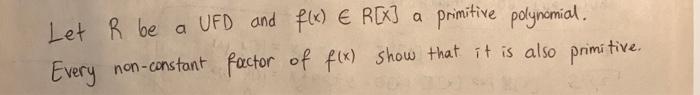 Let R be a UFD and f(x) ∈ R[x] a primitive polynomial.
Every non-constant factor of f(x) show that it is also primitive.